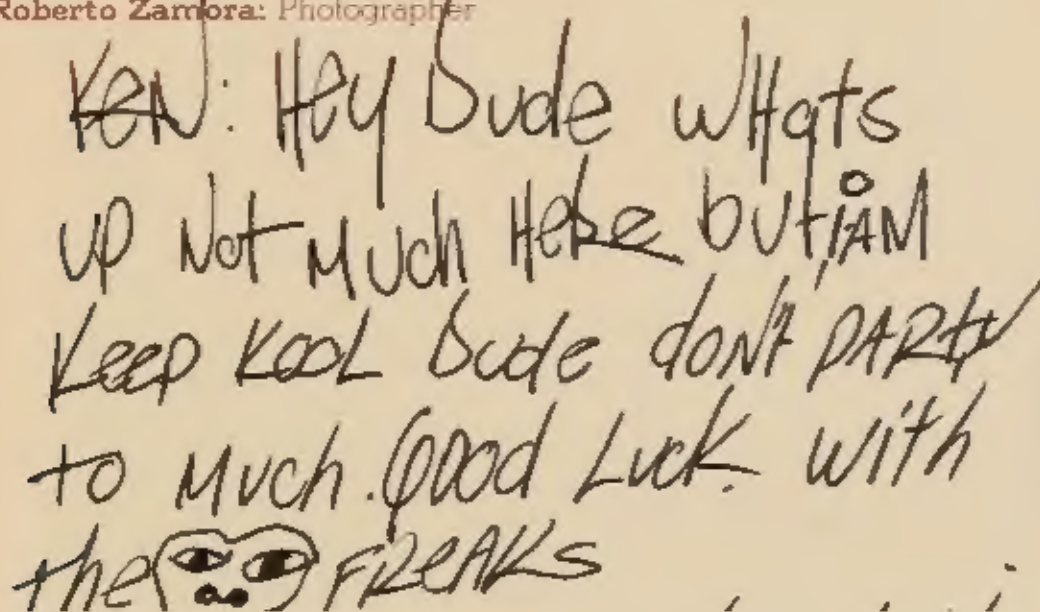 Roberto Zamora: Photographer
KeN: Hey Dude wHats
up Not Much HeRe but iAM
Keep KooL Dude doN't PARty
to Much. Good Luck. with
the FReAKs